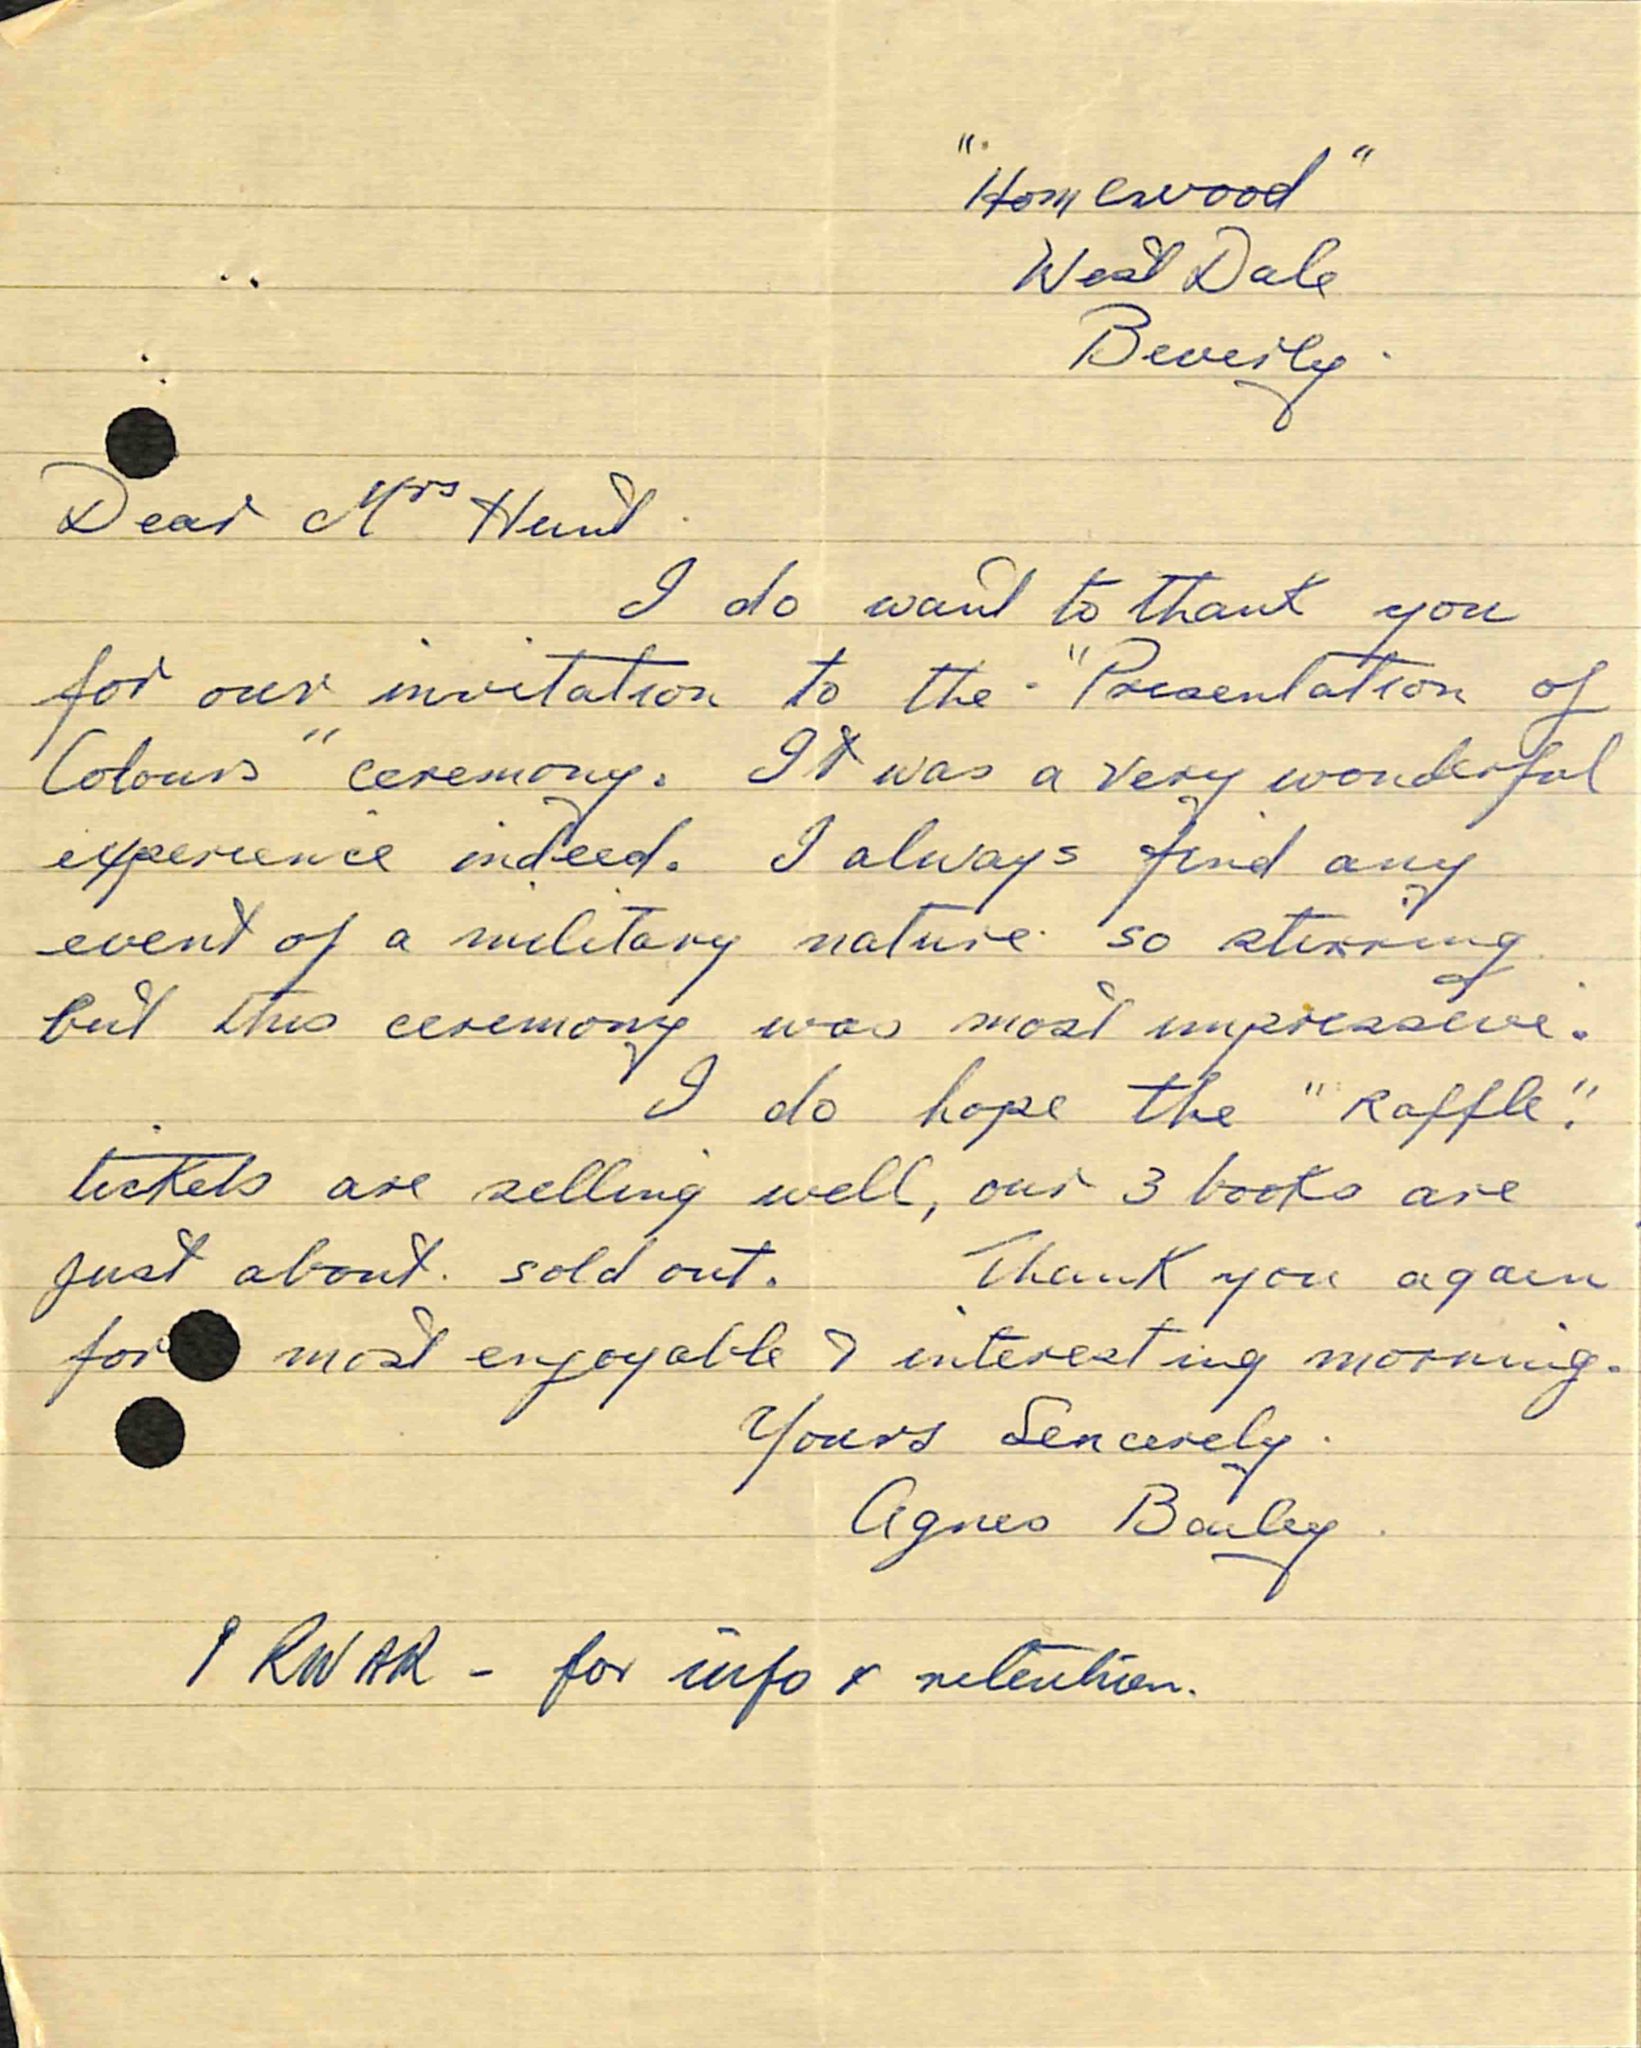 "Homewood"
West Dale
Beverly.
Dear Mrs Hunt.
I do want to thank you
for our invitation to the "Presentation of
Colours" ceremony. It was a very wonderful
experience indeed. I always find any
event of a military nature so stirring
but this ceremony was most impressive.
I do hope the "Raffle".
tickets are selling well, our 3 books are
just about sold out. Thank you again
for most enjoyable & interesting morning.
Yours Sincerely.
Agnes Bailey.
RWAR - for info & retention.